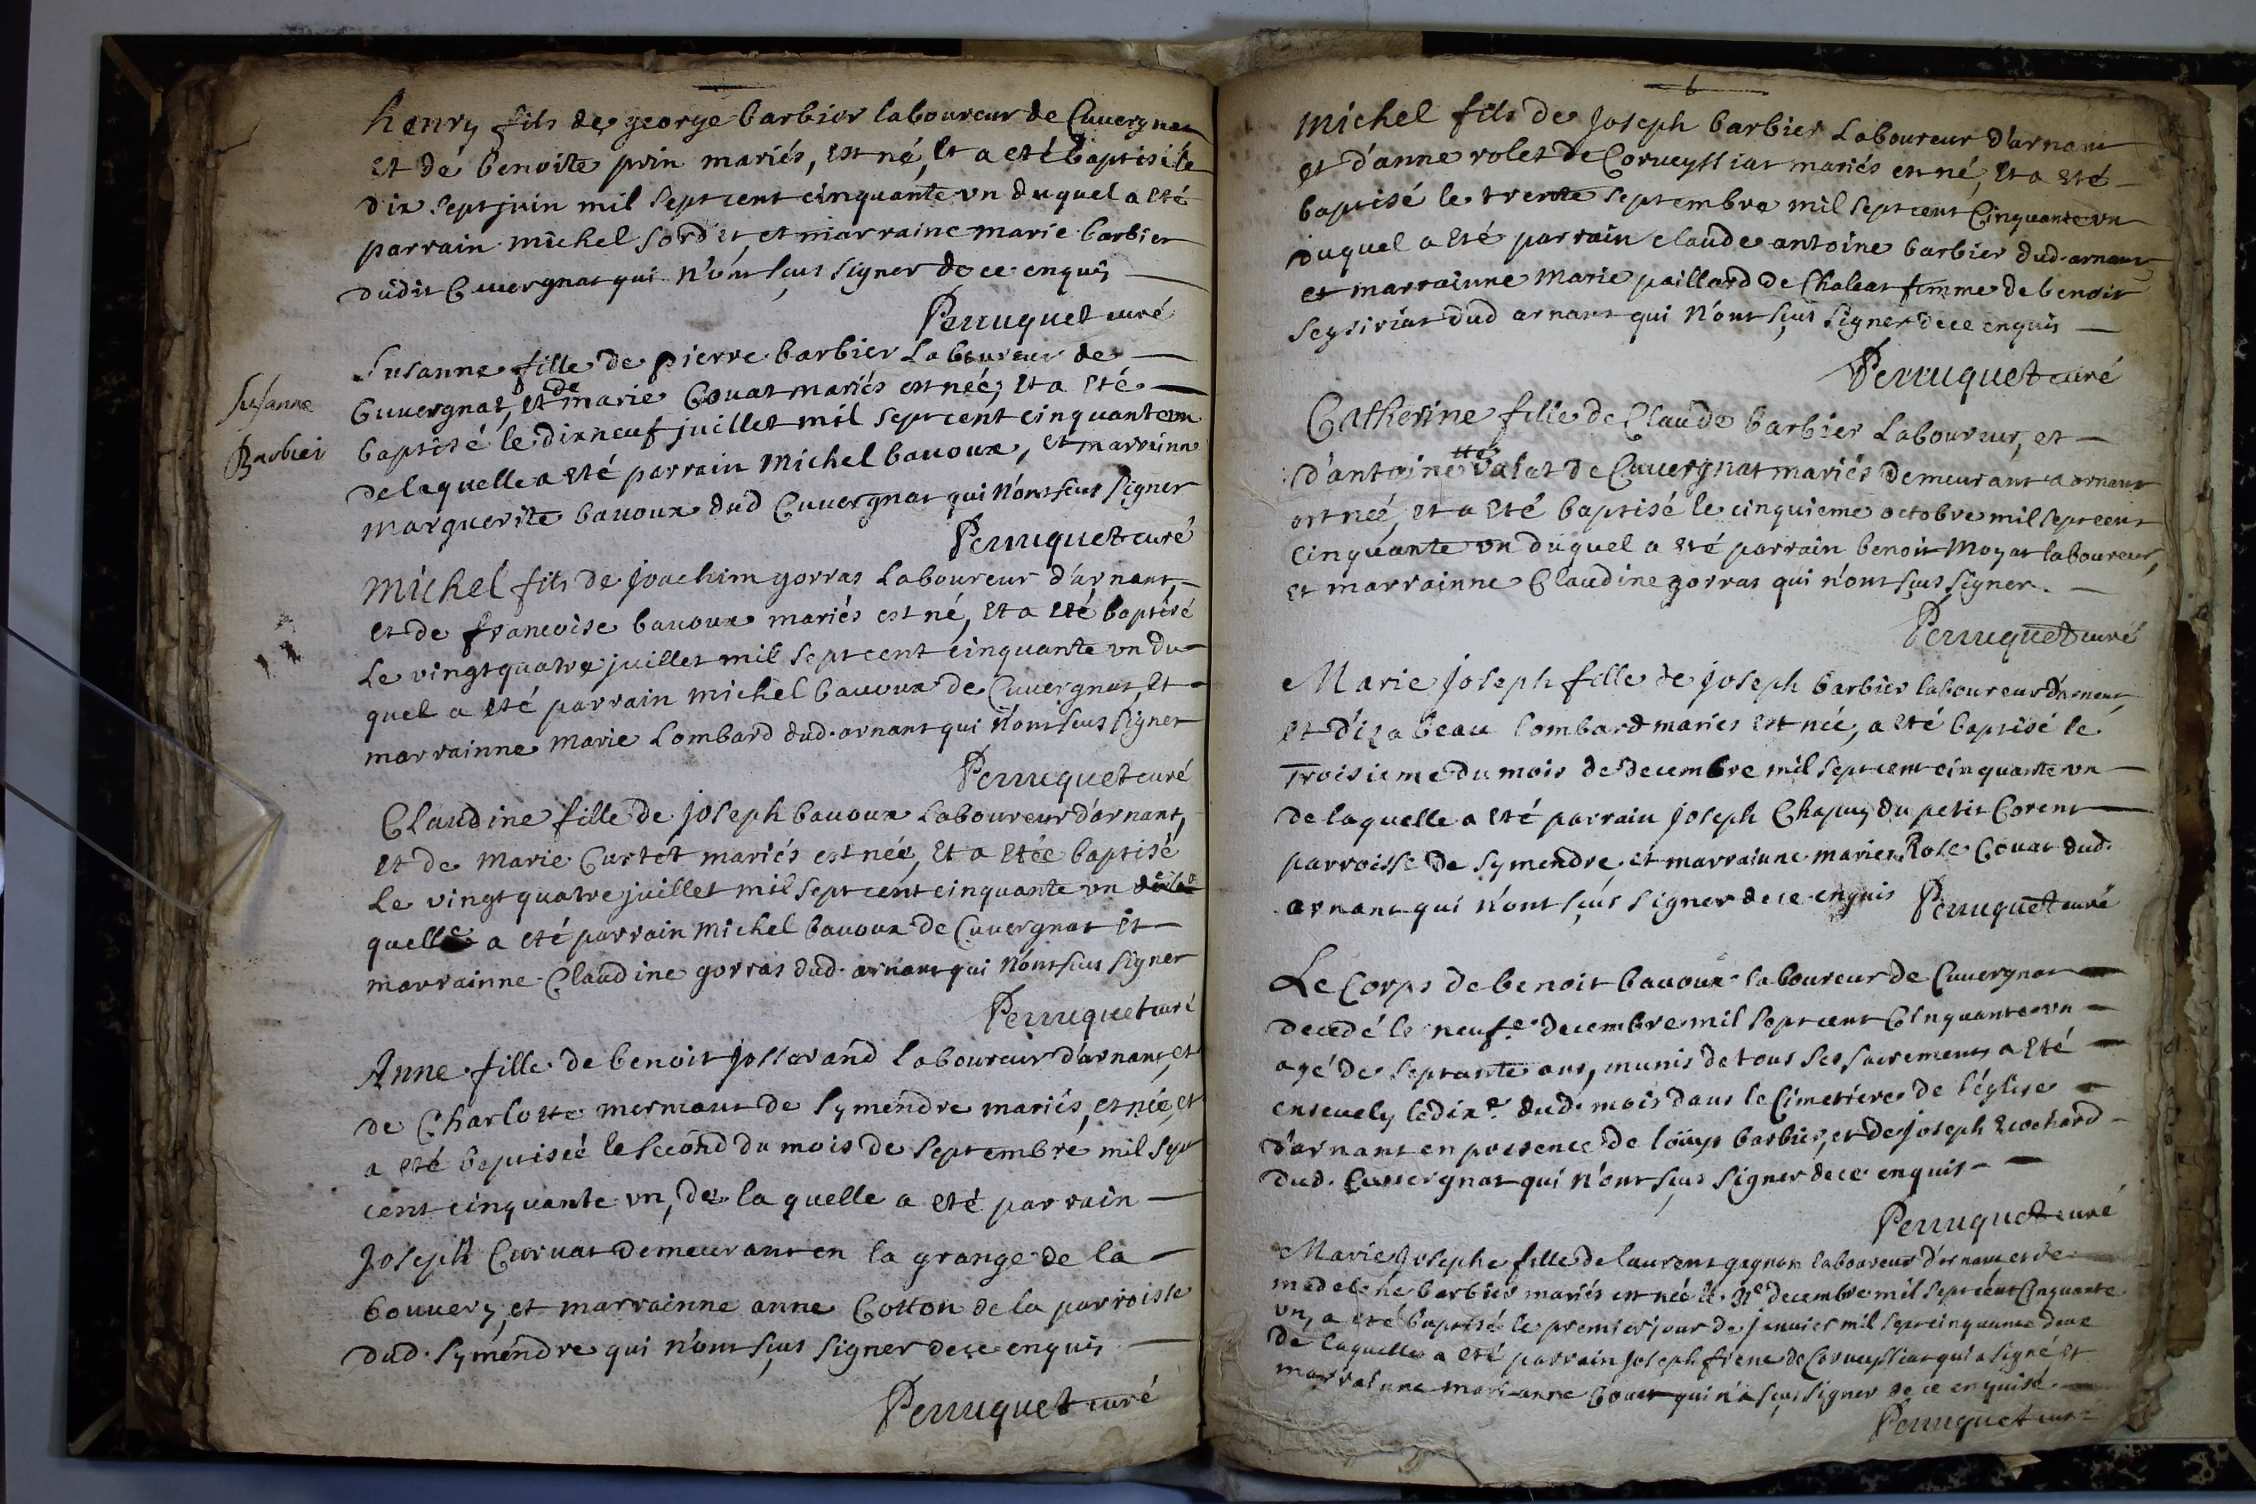 henry fils de george barbier laboureur de Cuuergnat
et de benoite prin mariés, est né, et a eté baptisé le
dix sept juin mil sept cent cinquante un duquel a eté
parrain michel sordet, et marraine marie barbier
dudit Cuuergnat qui n'ont sçus signer de ce enquis
Perruquet curé
Susanne fille de pierre barbier laboureur de
Cuuergnat, et de marie Couat mariés est née, et a eté
Susanne
Barbier
baptisé le dixneuf juillet mil sept cent cinquante un
de laquelle a eté parrain michel bauoux, et marrainne
marguerite bauoux dud Cuuergnat qui n'ont sçus signer
Perruquet curé
Michel fils de joachim gorras laboureur d'arnant,
et de francoise bauoux mariés est né, et a eté baptisé
le vingt quatre juillet mil sept cent cinquante un du
quel a eté parrain michel bauoux de Cuuergnat, et
marrainne marie Lombard dud. arnant qui n'ont sçus signer
Perruquet curé
Claudine fille de joseph bauoux laboureur d'arnant,
et de marie Curtet mariés est née, et a etée baptisé
le vingt quatre juillet mil sept cent cinquante un
quelle a eté parrain michel bauoux de Cuuergnat et
marrainne Claudine gorras dud. arnant qui n'ont sçus signer
Perruquet curé
Anne fille de benoit jossarand laboureur d'arnant, et
de Charlotte mermant de symendre mariés, est née, et
a eté baptiseé le second du mois de septembre mil sept
cent cinquante un, de la quelle a eté parrain
joseph Curuat demeurant en la grange de la
bouuery, et marrainne anne Cotton de la parroisse
dud. symendre qui n'ont sçus signer de ce enquis
Perruquet curé
6
Michel fils de joseph barbier laboureur d'arnant
et d'anne rolet de Corueyssiat mariés est né, et a eté
baptisé le trente septembre mil sept cent cinquante un
duquel a eté parrain claude antoine barbier dud. arnant
et marrainne marie paillard de Chaleat femme de benoit
seysiriat dud arnant qui n'ont sçus signer de ce enquis
Perruquet curé
Catherine fille de Claude barbier laboureur, et
d'antoinette valet de Cuuergnat mariés demeurant a arnant
est née, et a eté baptisé le cinquieme octobre mil sept cent
cinquante un duquel a eté parrain benoit Moyat laboureur,
et marrainne Claudine gorras qui n'ont sçus signer.
Perruquet curé
Marie joseph fille de joseph barbier laboureur d'arnant,
et d'izabeau lombard mariés est née, a eté baptisé le
troisieme du mois de decembre mil sept cent cinquante un
de laquelle a eté parrain joseph Chapuy du petit Corent
parroisse de symendre, et marrainne marie Rose Couat dud.
arnant qui n'ont sçus signer de ce enquis Perruquet curé
Le Corps de benoit bauoux laboureur de Cuuergnat
decedé le neufe. decembre mil sept cent cinquante un
agé de septante ans, munis de tous ses sacrements a eté
enseuely le dixe. dud. mois dans le Cimetiere de l'église
d'arnant en presence de loüys barbier, et de joseph ecochard
dud. Cuuergnat qui n'ont sçus signer de ce enquis
Perruquet curé
Marie josephe fille de laurent gagnon laboureur d'arnant et de
medelene barbier mariés est née le 31e decembre mil sept cent cinquante
un, a eté baptisé le premier jour de janvier mil sept cinquante deux
de laquelle a eté parrain joseph frene de Corueyssiat qui a signé et
marrainne marianne Couat qui n'a sçus signer de ce enquise
Perruquet curé